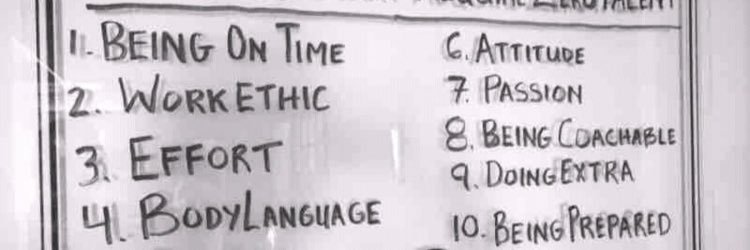 ZERO TALENT
1. BEING ON TIME
2. WORK ETHIC
3. EFFORT
4. BODY LANGUAGE
6. ATTITUDE
7. PASSION
8. BEING COACHABLE
9. DOING EXTRA
10. BEING PREPARED